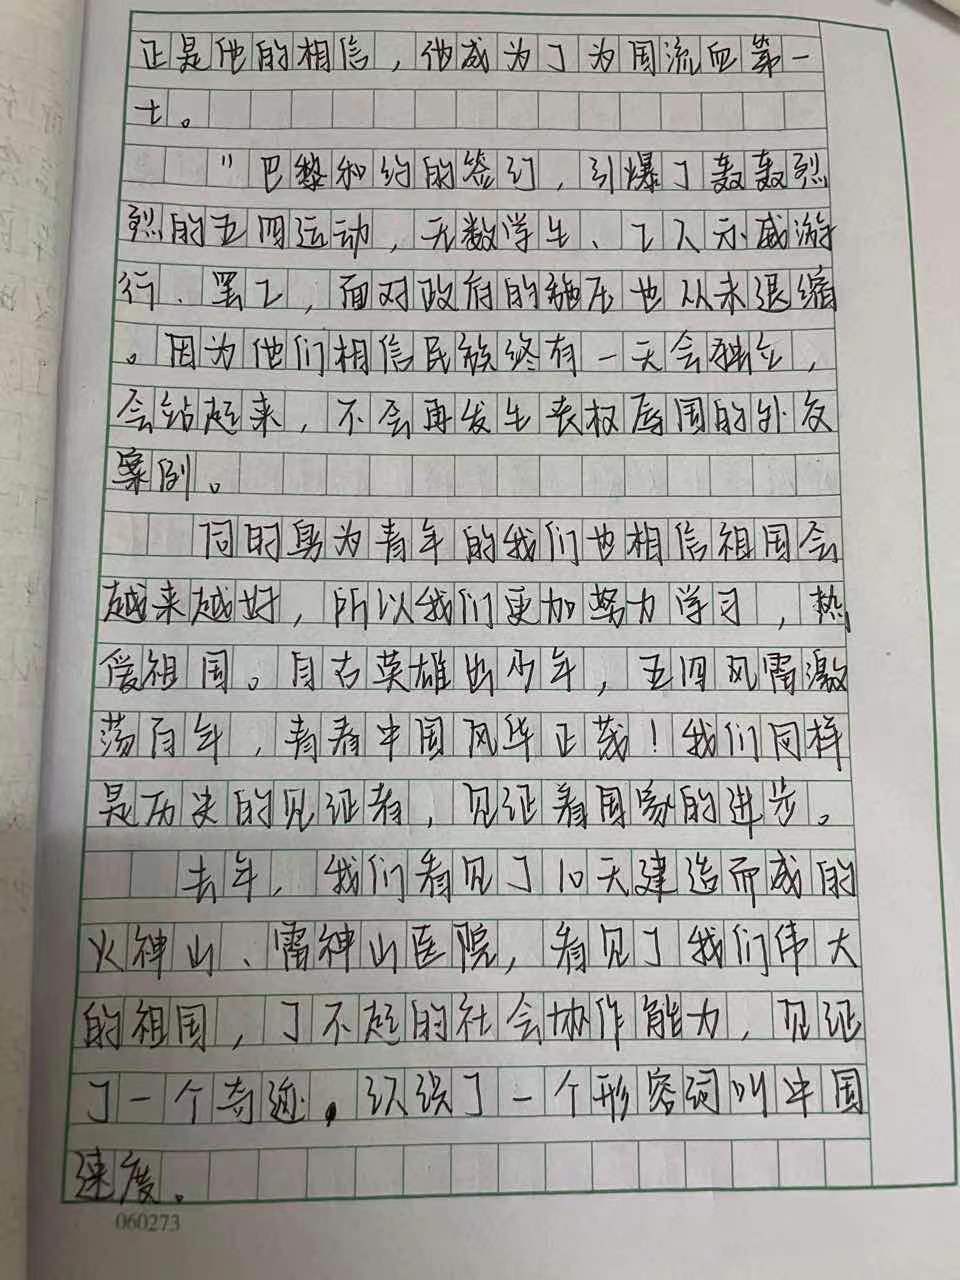 正是他的相信，他成为了为国流血第一
士。
"巴黎和约的签订，引爆了轰轰烈
烈的五四运动，无数学生、工人示威游
行、罢工，面对政府的施压也从未退缩
。因为他们相信民族终有一天会独立，
会站起来，不会再发生丧权辱国的外交
案例。
同时身为青年的我们也相信祖国会
越来越好，所以我们更加努力学习，热
爱祖国。自古英雄出少年，五四风雷激
荡百年，青春中国风华正茂！我们同样
是历史的见证者，见证着国家的进步。
去年，我们看见了10天建造而成的
火神山、雷神山医院，看见了我们伟大
的祖国，了不起的社会协作能力，见证
了一个奇迹，认识了一个形容词叫中国
速度。
060273